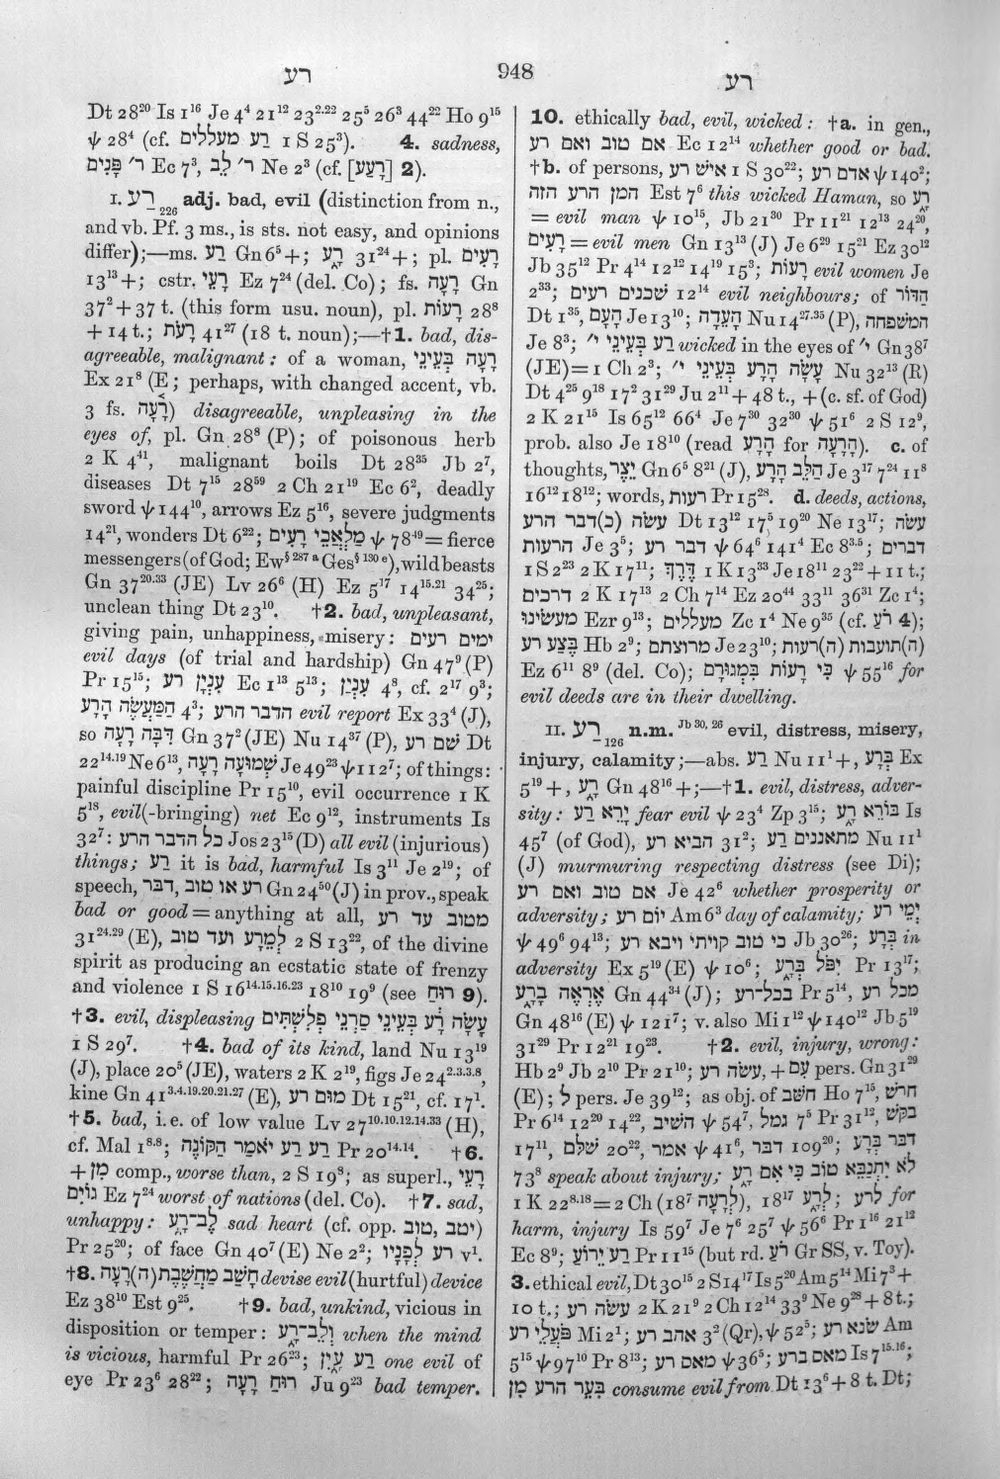 רע 948 רע
Dt 28²⁰ Is 1¹⁶ Je 4⁴ 21¹² 23²·²² 25⁵ 26³ 44²² Ho 9¹⁵
ψ 28⁴ (cf. רע מעללים 1 S 25³). 4. sadness,
ר׳ פָּנִים Ec 7³, ר׳ לֵב Ne 2³ (cf. [רָעַע] 2).
I. רַע 226 adj. bad, evil (distinction from n.,
and vb. Pf. 3 ms., is sts. not easy, and opinions
differ);—ms. רַע Gn 6⁵ +; רָע 31²⁴ +; pl. רָעִים
13¹³ +; cstr. רָעֵי Ez 7²⁴ (del. Co); fs. רָעָה Gn
37² + 37 t. (this form usu. noun), pl. רָעוֹת 28⁸
+ 14 t.; רָעֹת 41²⁷ (18 t. noun);—†1. bad, dis-
agreeable, malignant: of a woman, רָעָה בְּעֵינֵי
Ex 21⁸ (E; perhaps, with changed accent, vb.
3 fs. רָעָה) disagreeable, unpleasing in the
eyes of, pl. Gn 28⁸ (P); of poisonous herb
2 K 4⁴¹, malignant boils Dt 28³⁵ Jb 2⁷,
diseases Dt 7¹⁵ 28⁵⁹ 2 Ch 21¹⁹ Ec 6², deadly
sword ψ 144¹⁰, arrows Ez 5¹⁶, severe judgments
14²¹, wonders Dt 6²²; מַלְאֲכֵי רָעִים ψ 78⁴⁹ = fierce
messengers (of God; Ew§ 287 a Ges§ 130 e), wild beasts
Gn 37²⁰·³³ (JE) Lv 26⁶ (H) Ez 5¹⁷ 14¹⁵·²¹ 34²⁵;
unclean thing Dt 23¹⁰. †2. bad, unpleasant,
giving pain, unhappiness, misery: ימים רעים
evil days (of trial and hardship) Gn 47⁹ (P)
Pr 15¹⁵; עִנְיַן רע Ec 1¹³ 5¹³; עִנְיַן 4⁸, cf. 2¹⁷ 9³;
הַמַּעֲשֶׂה הָרָע 4³; הדבר הרע evil report Ex 33⁴ (J),
so דִּבָּה רָעָה Gn 37² (JE) Nu 14³⁷ (P), שֵׁם רע Dt
22¹⁴·¹⁹ Ne 6¹³, שְׁמוּעָה רָעָה Je 49²³ ψ 112⁷; of things:
painful discipline Pr 15¹⁰, evil occurrence 1 K
5¹⁸, evil(-bringing) net Ec 9¹², instruments Is
32⁷: כל הדבר הרע Jos 23¹⁵ (D) all evil (injurious)
things; רַע it is bad, harmful Is 3¹¹ Je 2¹⁹; of
speech, דבר, רע או טוב Gn 24⁵⁰ (J) in prov., speak
bad or good = anything at all, מטוב עד רע
31²⁴·²⁹ (E), לְמֵרָע ועד טוב 2 S 13²², of the divine
spirit as producing an ecstatic state of frenzy
and violence 1 S 16¹⁴·¹⁵·¹⁶·²³ 18¹⁰ 19⁹ (see רוּחַ 9).
†3. evil, displeasing עָשָׂה רָע בְּעֵינֵי סַרְנֵי פְלִשְׁתִּים
1 S 29⁷. †4. bad of its kind, land Nu 13¹⁹
(J), place 20⁵ (JE), waters 2 K 2¹⁹, figs Je 24²·³·³·⁸,
kine Gn 41³·⁴·¹⁹·²⁰·²¹·²⁷ (E), מוּם רע Dt 15²¹, cf. 17¹.
†5. bad, i.e. of low value Lv 27¹⁰·¹⁰·¹²·¹⁴·³³ (H),
cf. Mal 1⁸·⁸; רַע רַע יֹאמַר הַקּוֹנֶה Pr 20¹⁴·¹⁴. †6.
+ מִן comp., worse than, 2 S 19⁸; as superl., רָעֵי
גוֹיִם Ez 7²⁴ worst of nations (del. Co). †7. sad,
unhappy: לֶב־רָע sad heart (cf. opp. טוב, יטב)
Pr 25²⁰; of face Gn 40⁷ (E) Ne 2²; רע לְפָנָיו v¹.
†8. חָשַׁב מַחֲשֶׁבֶת(ה)רָעָה devise evil (hurtful) device
Ez 38¹⁰ Est 9²⁵. †9. bad, unkind, vicious in
disposition or temper: וְלֶב־רָע when the mind
is vicious, harmful Pr 26²³; רַע עָיִן one evil of
eye Pr 23⁶ 28²²; רוּחַ רָעָה Ju 9²³ bad temper.
10. ethically bad, evil, wicked: †a. in gen.,
אִם טוב ואם רע Ec 12¹⁴ whether good or bad.
†b. of persons, אִישׁ רע 1 S 30²²; אדם רע ψ 140²;
המן הרע הזה Est 7⁶ this wicked Haman, so רָע
= evil man ψ 10¹⁵, Jb 21³⁰ Pr 11²¹ 12¹³ 24²⁰,
רָעִים = evil men Gn 13¹³ (J) Je 6²⁹ 15²¹ Ez 30¹²
Jb 35¹² Pr 4¹⁴ 12¹² 14¹⁹ 15³; רָעוֹת evil women Je
2³³; שכנים רעים 12¹⁴ evil neighbours; of הַדּוֹר
Dt 1³⁵, הָעָם Je 13¹⁰; הָעֵדָה Nu 14²⁷·³⁵ (P), המשפחה
Je 8³; רַע בְּעֵינֵי י׳׳ wicked in the eyes of י׳׳ Gn 38⁷
(JE) = 1 Ch 2³; עָשָׂה הָרַע בְּעֵינֵי י׳׳ Nu 32¹³ (R)
Dt 4²⁵ 9¹⁸ 17² 31²⁹ Ju 2¹¹ + 48 t., + (c. sf. of God)
2 K 21¹⁵ Is 65¹² 66⁴ Je 7³⁰ 32³⁰ ψ 51⁶ 2 S 12⁹,
prob. also Je 18¹⁰ (read הָרַע for הָרָעָה). c. of
thoughts, יֵצֶר Gn 6⁵ 8²¹ (J), הַלֵּב הָרָע Je 3¹⁷ 7²⁴ 11⁸
16¹² 18¹²; words, רעות Pr 15²⁸. d. deeds, actions,
עשׂה (כ)דבר הרע Dt 13¹² 17⁵ 19²⁰ Ne 13¹⁷; עשׂה
הרעות Je 3⁵; דבר רע ψ 64⁶ 141⁴ Ec 8³·⁵; דברים
1 S 2²³ 2 K 17¹¹; דֶּרֶךְ 1 K 13³³ Je 18¹¹ 23²² + 11 t.;
דרכים 2 K 17¹³ 2 Ch 7¹⁴ Ez 20⁴⁴ 33¹¹ 36³¹ Zc 1⁴;
מעשׂינוּ Ezr 9¹³; מעללים Zc 1⁴ Ne 9³⁵ (cf. רֹעַ 4);
בֶּצַע רע Hb 2⁹; מרוצתם Je 23¹⁰; (ה)תועבות (ה)רעות
Ez 6¹¹ 8⁹ (del. Co); כִּי רָעוֹת בִּמְגוּרָם ψ 55¹⁶ for
evil deeds are in their dwelling.
II. רַע 126 n.m. Jb 30, 26 evil, distress, misery,
injury, calamity;—abs. רַע Nu 11¹ +, בְּרָע Ex
5¹⁹ +, רָע Gn 48¹⁶ +;—†1. evil, distress, adver-
sity: יָרֵא רַע fear evil ψ 23⁴ Zp 3¹⁵; בּוֹרֵא רָע Is
45⁷ (of God), הביא רע 31²; מתאננים רַע Nu 11¹
(J) murmuring respecting distress (see Di);
אם טוב ואם רע Je 42⁶ whether prosperity or
adversity; יוֹם רע Am 6³ day of calamity; יְמֵי רע
ψ 49⁶ 94¹³; כי טוב קויתי ויבא רע Jb 30²⁶; בְּרָע in
adversity Ex 5¹⁹ (E) ψ 10⁶; יִפֹּל בְּרָע Pr 13¹⁷;
אֶרְאֶה בָרָע Gn 44³⁴ (J); בכל־רע Pr 5¹⁴, מכל רע
Gn 48¹⁶ (E) ψ 121⁷; v. also Mi 1¹² ψ 140¹² Jb 5¹⁹
31²⁹ Pr 12²¹ 19²³. †2. evil, injury, wrong:
Hb 2⁹ Jb 2¹⁰ Pr 21¹⁰; עשׂה רע, + עִם pers. Gn 31²⁹
(E); לְ pers. Je 39¹²; as obj. of חשׁב Ho 7¹⁵, חרשׁ
Pr 6¹⁴ 12²⁰ 14²², השׁיב ψ 54⁷, גמל 7⁵ Pr 31¹², בקשׁ
17¹¹, שׁלם 20²², אמר ψ 41⁶, דבר 109²⁰; דבר בְּרָע
73⁸ speak about injury; לֹא יִתְנַבֵּא טוֹב כִּי אִם רָע
1 K 22⁸·¹⁸ = 2 Ch (18⁷ לְרָעָה), 18¹⁷ לְרָע; לרע for
harm, injury Is 59⁷ Je 7⁶ 25⁷ ψ 56⁶ Pr 1¹⁶ 21¹²
Ec 8⁹; רַע יֵרוֹעַ Pr 11¹⁵ (but rd. רֹעַ Gr SS, v. Toy).
3. ethical evil, Dt 30¹⁵ 2 S 14¹⁷ Is 5²⁰ Am 5¹⁴ Mi 7³ +
10 t.; עשׂה רע 2 K 21⁹ 2 Ch 12¹⁴ 33⁹ Ne 9²⁸ + 8 t.;
פֹּעֲלֵי רע Mi 2¹; אהב רע 3² (Qr), ψ 52⁵; שׂנא רע Am
5¹⁵ ψ 97¹⁰ Pr 8¹³; מאס רע ψ 36⁵; מאס ברע Is 7¹⁵·¹⁶;
בִּעֵר הרע מִן consume evil from Dt 13⁶ + 8 t. Dt;